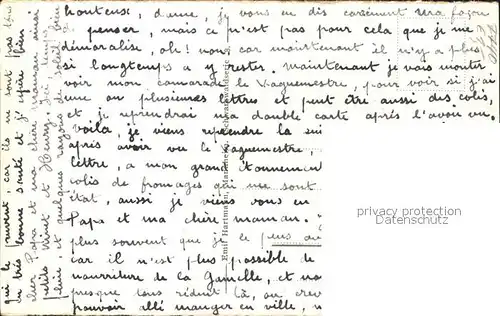 honteuse, dame, je vous en dis carrément ma façon
de penser, mais ce n'est pas pour cela que je me
démoralise, oh! non, car maintenant il n'y a plus
si longtemps a y rester. Maintenant je vais monter
voir mon camarade le Vaguemestre, pour voir si j'ai
une ou plusieurs lettres et peut être aussi des colis,
et je reprendrai ma double carte après l'avoir vu.
Voila, je viens reprendre la
après avoir vu le vaguemestre,
lettre, a mon grand étonnement
colis de fromages qui me sont
état, aussi je viens vous en
Papa et ma chère maman.
plus souvent que je le peus
car il n'est plus possible de
nourriture de la Gamelle, et
presque tous réduit là, ou
pouvoir allé manger en ville,
qui le peuvent, car ils ne sont pas
en très bonne santé et j'espère bien
cher Papa et ma chère maman ainsi
petits et Henry. Ici
pleut, et quelques rayons de soleil
Emil Hartmann, Mannheim
privacy protection